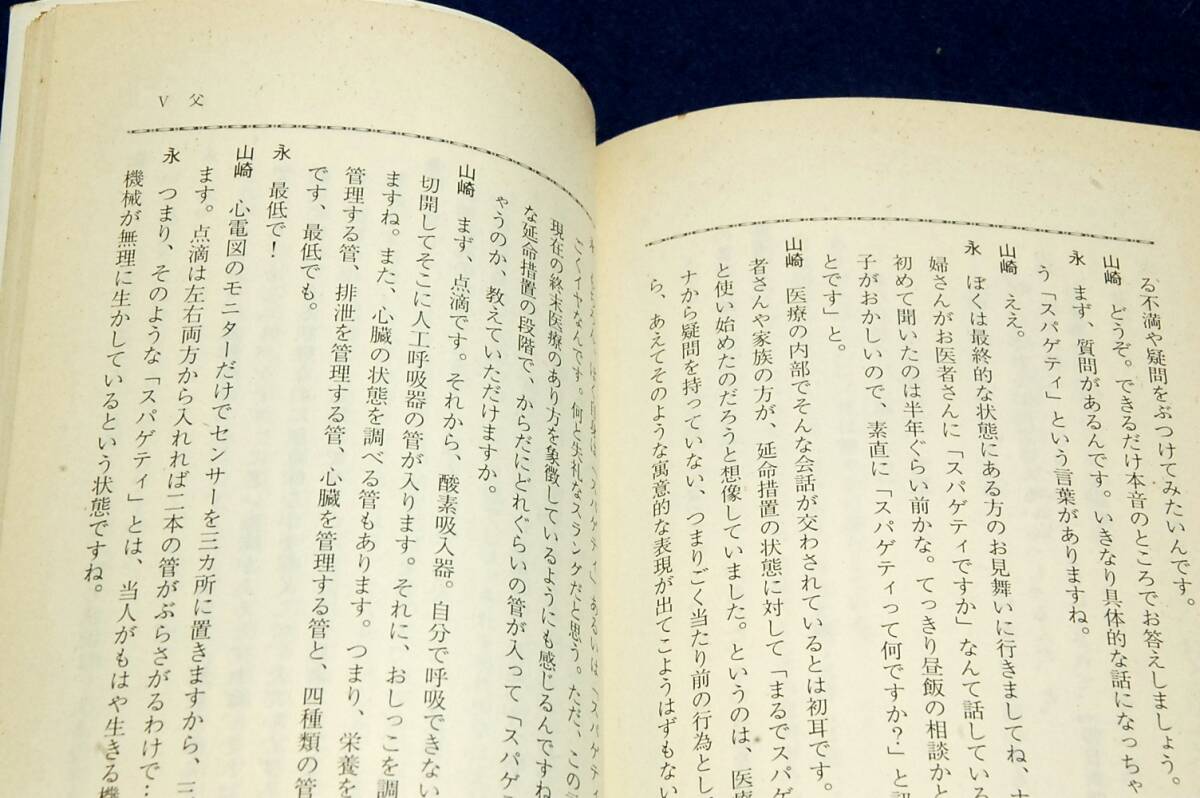 る不満や疑問をぶつけてみたいんです。
山崎　どうぞ。できるだけ本音のところでお答えしましょう。
永　まず、質問があるんです。いきなり具体的な話になっちゃ
う「スパゲティ」という言葉がありますね。
山崎　ええ。
永　ぼくは最終的な状態にある方のお見舞いに行きましてね、
婦さんがお医者さんに「スパゲティですか」なんて話している
初めて聞いたのは半年ぐらい前かな。てっきり昼飯の相談かと
子がおかしいので、素直に「スパゲティって何ですか？」と
とです」と。
山崎　医療の内部でそんな会話が交わされているとは初耳です。
者さんや家族の方が、延命措置の状態に対して「まるでスパゲ
と使い始めたのだろうと想像していました。というのは、医療
ナから疑問を持っていない、つまりごく当たり前の行為とし
ら、あえてそのような寓意的な表現が出てこようはずもない
V　父
ごくイヤなんです。何と失礼なスラングだと思う。ただ、この
現在の終末医療のあり方を象徴しているようにも感じるんですね
な延命措置の段階で、からだにどれぐらいの管が入って「スパゲ
ゃうのか、教えていただけますか。
山崎　まず、点滴です。それから、酸素吸入器。自分で呼吸できない
切開してそこに人工呼吸器の管が入ります。それに、おしっこを調
ますね。また、心臓の状態を調べる管もあります。つまり、栄養を
管理する管、排泄を管理する管、心臓を管理する管と、四種類の管
です、最低でも。
永　最低で！
山崎　心電図のモニターだけでセンサーを三カ所に置きますから、三
ます。点滴は左右両方から入れれば二本の管がぶらさがるわけで…
永　つまり、そのような「スパゲティ」とは、当人がもはや生きる機
機械が無理に生かしているという状態ですね。